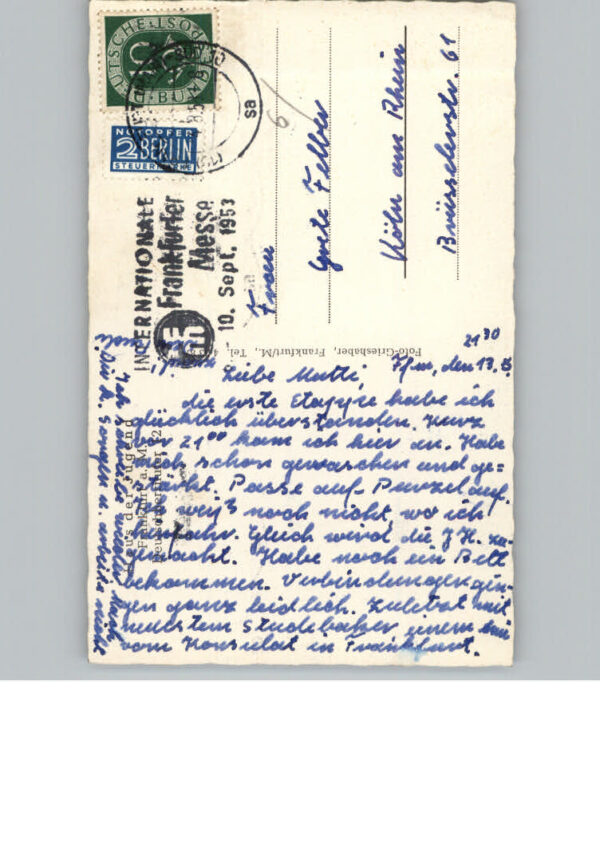 DEUTSCHE BUNDESPOST
10
NOTOPFER
2 BERLIN
STEUERMARKE
INTERNATIONALE
Frankfurter
Messe
10. Sept. 1953
Frau
Grete Felber
Köln am Rhein
Brüsselerstr. 61
Foto-Grieshaber, Frankfurt/M., Tel.
Haus der Jugend
Frankfurt a. M.
21 30
Ffm, den 13. 8.
Liebe Mutti,
die erste Etappe habe ich
glücklich überstanden. Kurz
vor 21 00 kam ich hier an. Habe
mich schon gewaschen und ge-
stärkt. Passe auf Purzel auf.
weiß noch nicht, wo ich
hinfahr. Gleich wird die J.H. zu-
gemacht. Habe noch ein Bett
bekommen. Verbindungen gin-
gen ganz leidlich. Zuletzt mit
neustem Studebaker einem
vom Konsulat in Frankfurt.
Ich schreibe wieder. Mach
Dir k. Sorgen u. arbeite nicht